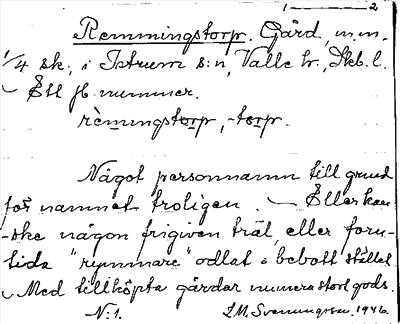 1 — 2
Remmingstorp. Gård, m.m.
1/4 sk., i Istrum s:n, Valle hr., Skb. l.
– Ett jb. nummer.
rèmmingstorp, -torp.
Något personnamn till grund
för namnet troligen. – Eller kan-
-ske någon frigiven träl, eller forn-
tida "rymmare" odlat o bebott stället
– Med tillköpta gårdar numera stort gods.
N:1. J.M. Svenungsson. 1946.